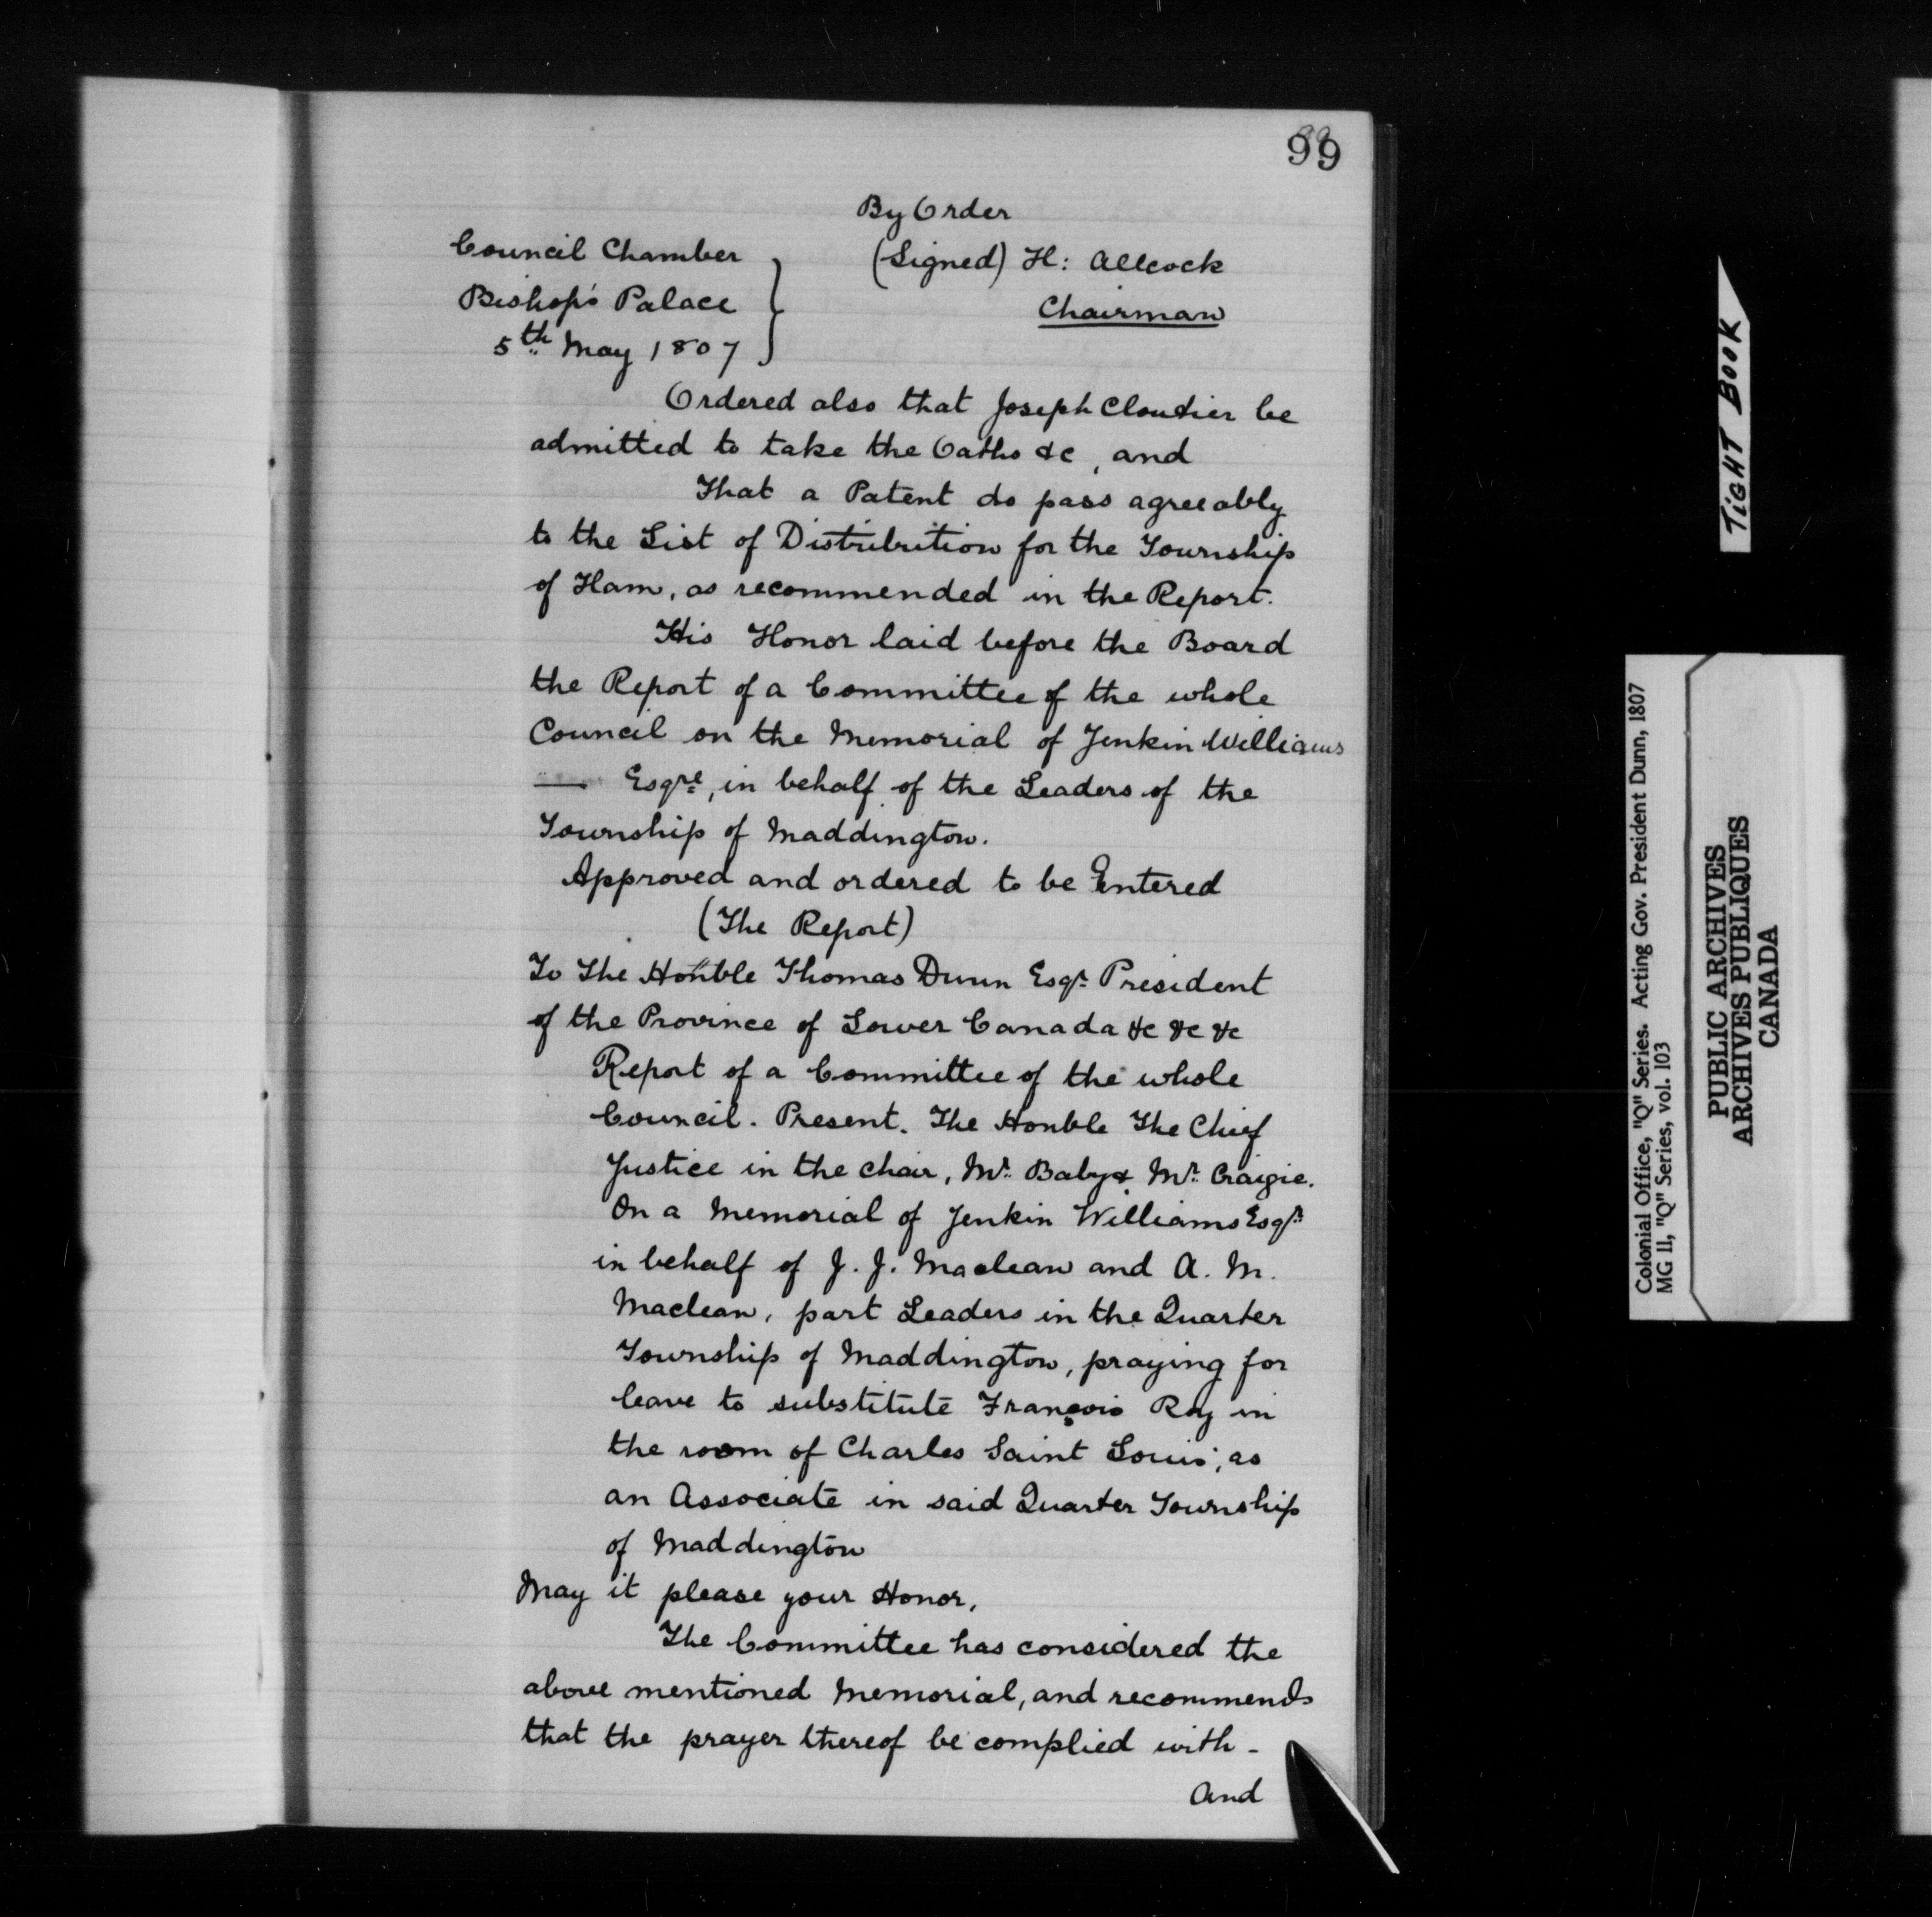 99
By Order
Council Chamber
Bishop's Palace
5th May 1807
(Signed) H: Allcock
Chairman
Ordered also that Joseph Cloutier be
admitted to take the Oaths &c, and
That a Patent do pass agreeably
to the List of Distribution for the Township
of Ham, as recommended in the Report.
His Honor laid before the Board
the Report of a Committee of the whole
Council on the Memorial of Jenkin Williams
— Esqre, in behalf of the Leaders of the
Township of Maddington.
Approved and ordered to be Entered
(The Report)
To The Honble Thomas Dunn Esqr. President
of the Province of Lower Canada &c &c &c
Report of a Committee of the whole
Council. Present. The Honble The Chief
Justice in the chair, Mr. Baby & Mr. Craigie.
On a Memorial of Jenkin Williams Esqr.
in behalf of J. J. Maclean and A. M.
Maclean, part Leaders in the Quarter
Township of Maddington, praying for
leave to substitute François Roy in
the room of Charles Saint Louis, as
an Associate in said Quarter Township
of Maddington
May it please your Honor,
The Committee has considered the
above mentioned Memorial, and recommends
that the prayer thereof be complied with -
And
TIGHT BOOK
Colonial Office, "Q" Series. Acting Gov. President Dunn, 1807
MG 11, "Q" Series, vol. 103
PUBLIC ARCHIVES
ARCHIVES PUBLIQUES
CANADA